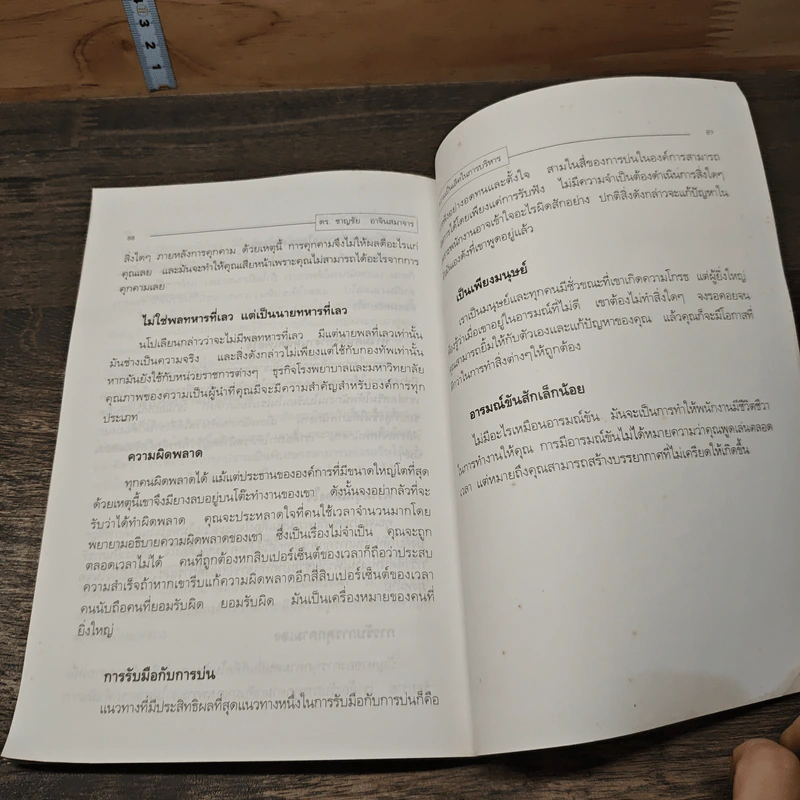 4 3 2 1
๑๑
ดร. ชาญชัย อาจินสมาจาร
สิ่งใดๆ ภายหลังการคุกคาม ด้วยเหตุนี้ การคุกคามจึงไม่ให้ผลดีอะไรแก่
คุณเลย และมันจะทำให้คุณเสียหน้าเพราะคุณไม่สามารถได้อะไรจากการ
คุกคามเลย
ไม่ใช่พลทหารที่เลว แต่เป็นนายทหารที่เลว
นโปเลียนกล่าวว่าจะไม่มีพลทหารที่เลว มีแต่นายพลที่เลวเท่านั้น
มันช่างเป็นความจริง และสิ่งดังกล่าวไม่เพียงแต่ใช้กับกองทัพเท่านั้น
หากมันยังใช้กับหน่วยราชการต่างๆ ธุรกิจโรงพยาบาลและมหาวิทยาลัย
คุณภาพของความเป็นผู้นำที่คุณมีจะมีความสำคัญสำหรับองค์การทุก
ประเภท
ความผิดพลาด
ทุกคนผิดพลาดได้ แม้แต่ประธานขององค์การที่มีขนาดใหญ่โตที่สุด
ด้วยเหตุนี้เขาจึงมียางลบอยู่บนโต๊ะทำงานของเขา ดังนั้นจงอย่ากลัวที่จะ
รับว่าได้ทำผิดพลาด คุณจะประหลาดใจที่คนใช้เวลาจำนวนมากโดย
พยายามอธิบายความผิดพลาดของเขา ซึ่งเป็นเรื่องไม่จำเป็น คุณจะถูก
ตลอดเวลาไม่ได้ คนที่ถูกต้องหกสิบเปอร์เซ็นต์ของเวลาก็ถือว่าประสบ
ความสำเร็จถ้าหากเขารีบแก้ความผิดพลาดอีกสี่สิบเปอร์เซ็นต์ของเวลา
คนนับถือคนที่ยอมรับผิด ยอมรับผิด มันเป็นเครื่องหมายของคนที่
ยิ่งใหญ่
การรับมือกับการบ่น
แนวทางที่มีประสิทธิผลที่สุดแนวทางหนึ่งในการรับมือกับการบ่นก็คือ
เป็นเลิศในการบริหาร
อย่างอดทนและตั้งใจ สามในสี่ของการบ่นในองค์การสามารถ
ได้โดยเพียงแค่การรับฟัง ไม่มีความจำเป็นต้องดำเนินการสิ่งใดๆ
พนักงานอาจเข้าใจอะไรผิดสักอย่าง ปกติสิ่งดังกล่าวจะแก้ปัญหาใน
ตัวมันเองดังที่เขาพูดอยู่แล้ว
เป็นเพียงมนุษย์
เราเป็นมนุษย์และทุกคนมีชั่วขณะที่เขาเกิดความโกรธ แต่ผู้ยิ่งใหญ่
รู้ว่าเมื่อเขาอยู่ในอารมณ์ที่ไม่ดี เขาต้องไม่ทำสิ่งใดๆ จงรอคอยจน
คุณสามารถยิ้มให้กับตัวเองและแก้ปัญหาของคุณ แล้วคุณก็จะมีโอกาสที่
ดีกว่าในการทำสิ่งต่างๆให้ถูกต้อง
อารมณ์ขันสักเล็กน้อย
ไม่มีอะไรเหมือนอารมณ์ขัน มันจะเป็นการทำให้พนักงานมีชีวิตชีวา
ในการทำงานให้คุณ การมีอารมณ์ขันไม่ได้หมายความว่าคุณพูดเล่นตลอด
เวลา แต่หมายถึงคุณสามารถสร้างบรรยากาศที่ไม่เครียดให้เกิดขึ้น